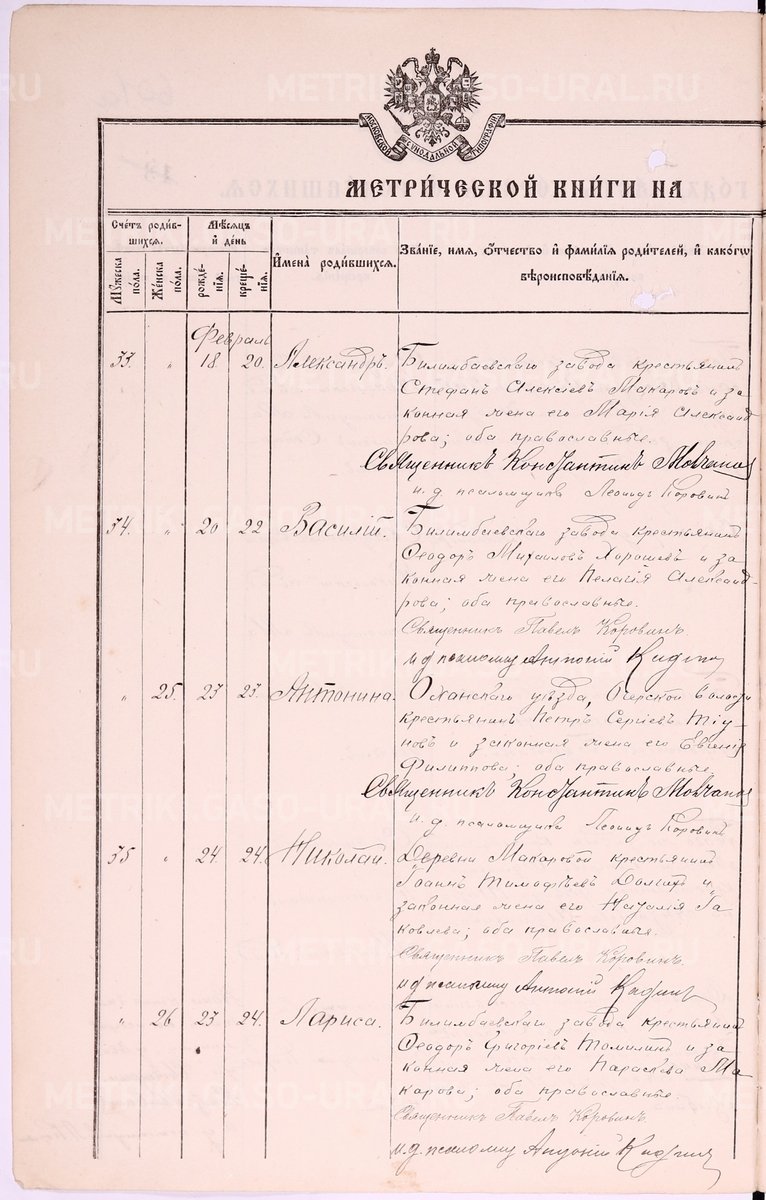 METRIKI.GASO-URAL.RU
МОСКОВСКОЙ СѴНОДАЛЬНОЙ ТИПОГРАФІИ
МЕТРИ́ЧЕСКОЙ КНИ́ГИ НА
Сче́тъ роди́в-
шихся.
Мѣ́сяцъ
и҆ де́нь
И҆мена̀ роди́вшихся.
Зва́нїе, имя, ѻ҆́тчество и҆ фами́лїя роди́телей, и҆ како́гѡ
вѣроисповѣ́данїя.
Мꙋ́жеска
по́ла.
Же́нска
по́ла.
рожде́-
нїя.
креще́-
нїя.
Февраль
33. „ 18 20. Александръ. Билимбаевскаго завода крестьянинъ
Стефанъ Алексіевъ Макаровъ и за
конная жена его Марія Александ
рова; оба православные.
Священникъ Константинъ Молчанов
и. д. псаломщика Леонидъ Коровинъ
34. „ 20 22 Василій. Билимбаевскаго завода крестьянинъ
Ѳеодоръ Михаиловъ Хорошевъ и за
конная жена его Пелагія Александ-
рова; оба православные.
Священникъ Павелъ Коровинъ
и д псаломщ Антоній
„ 25. 23 23. Антонина. Оханскаго уѣзда, Очерской волости
крестьянинъ Петръ Сергіевъ Тіу-
новъ и законная жена его Евгенія
Филиппова; оба православные.
Священникъ Константинъ Молчанов
и. д. псаломщика Леонидъ Коровинъ
35 „ 24 24. Николай. Деревни Макаровой крестьянинъ
Іоаннъ Тимоѳѣевъ Долгихъ и
законная жена его Наталія Іа
ковлева; оба православные.
Священникъ Павелъ Коровинъ
и д псаломщ Антоній
„ 26 23 24. Лариса. Билимбаевскаго завода крестьянинъ
Ѳеодоръ Григоріевъ Томилинъ и за
конная жена его Параскева Ма
карова; оба православные.
Священникъ Павелъ Коровинъ
и.д. псаломщ Антоній